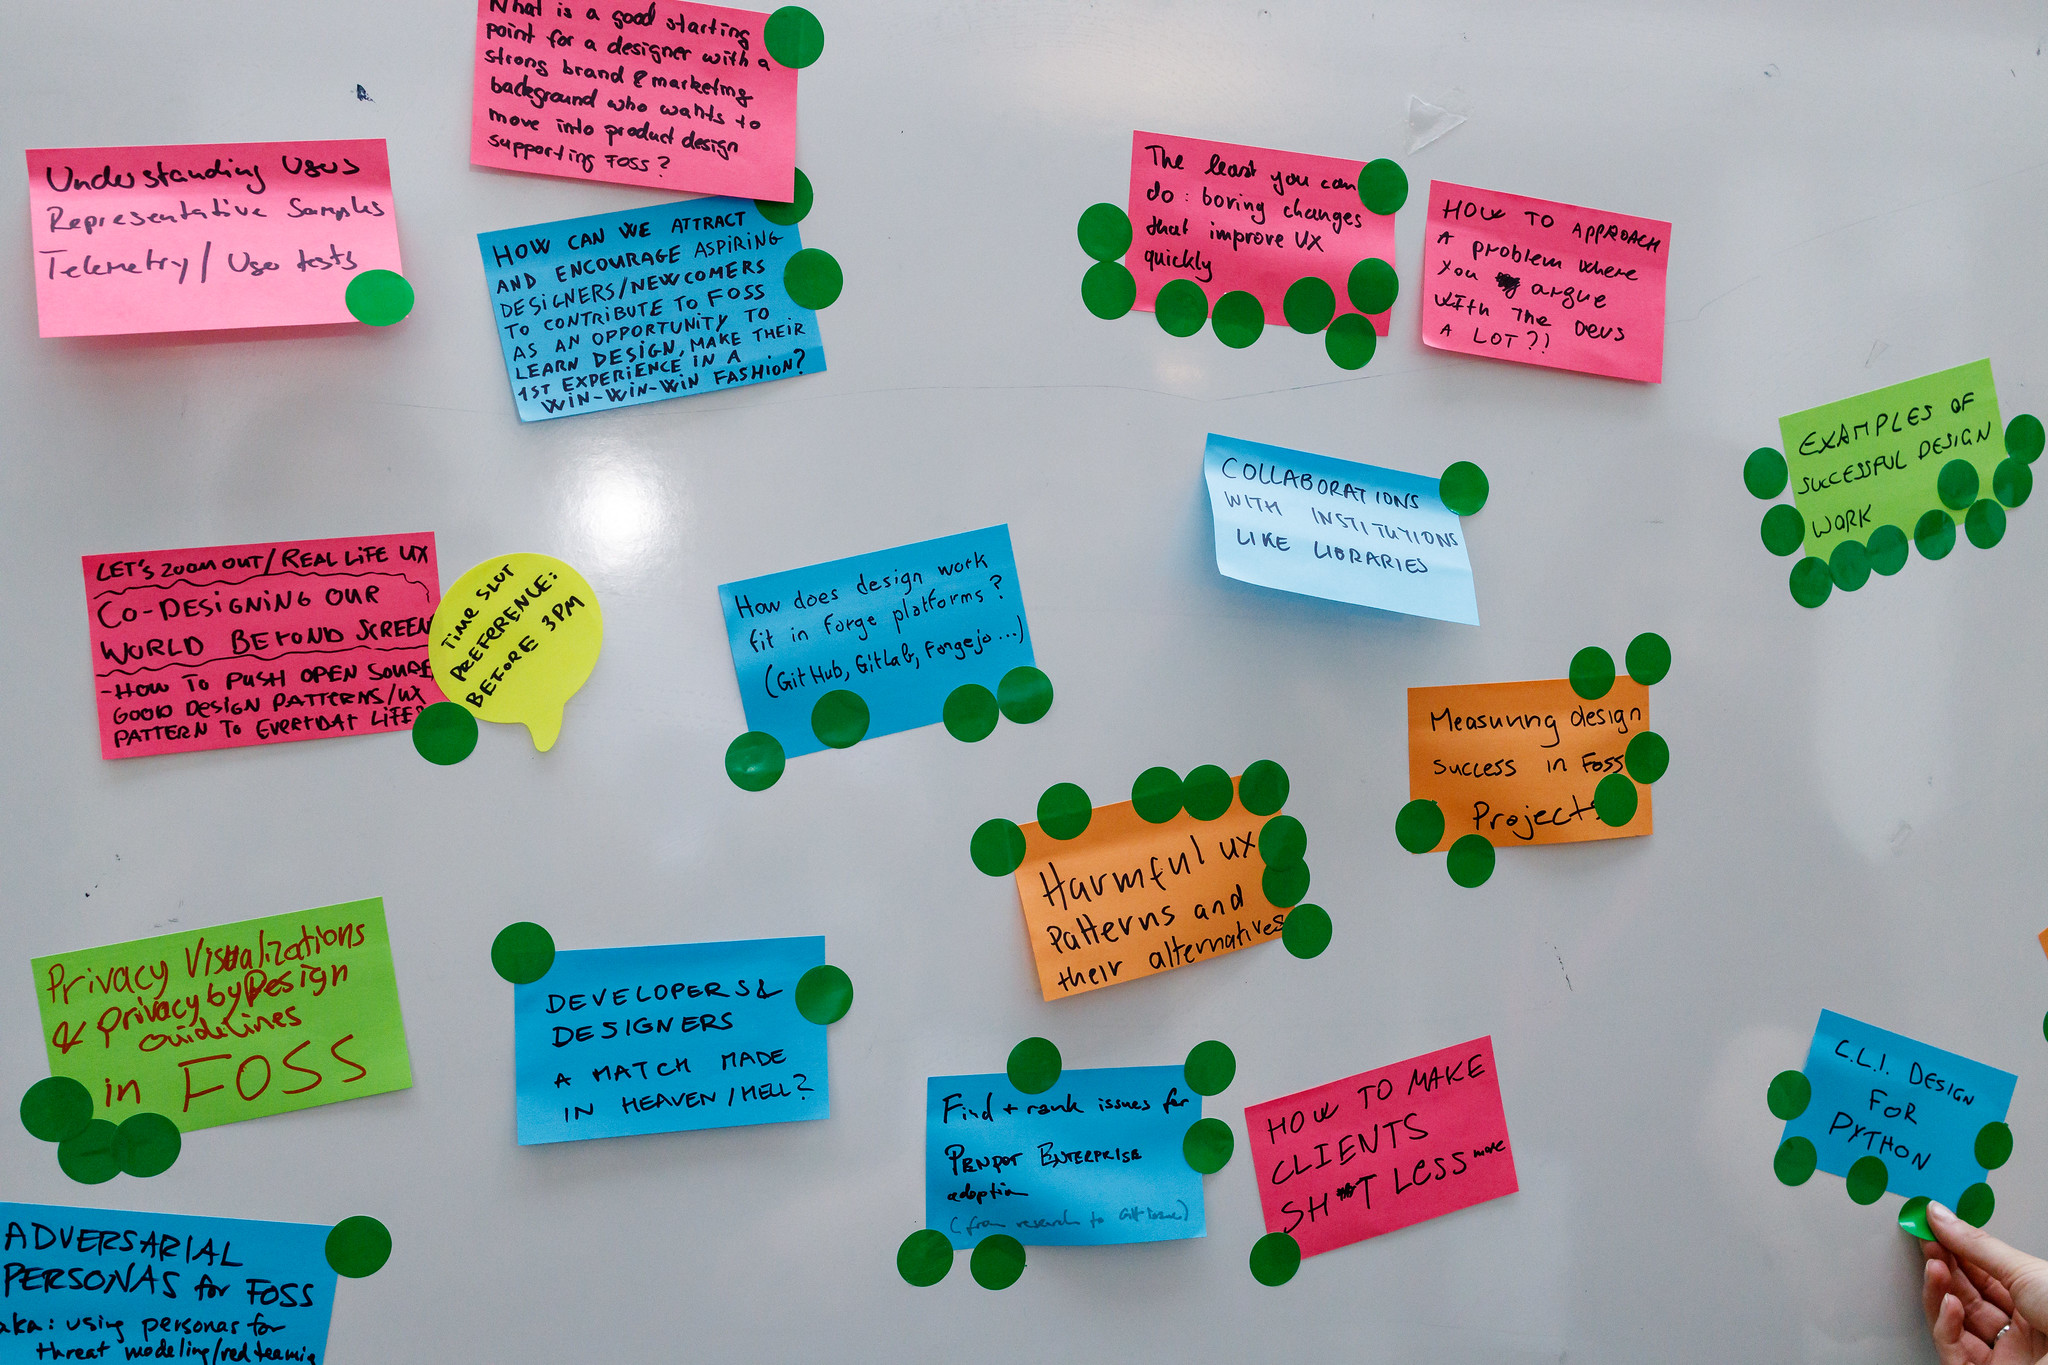 What is a good starting
point for a designer with a
strong brand & marketing
background who wants to
move into product design
supporting FOSS?
Understanding Users
Representative Samples
Telemetry / User tests
HOW CAN WE ATTRACT
AND ENCOURAGE ASPIRING
DESIGNERS/NEWCOMERS
TO CONTRIBUTE TO FOSS
AS AN OPPORTUNITY TO
LEARN DESIGN, MAKE THEIR
1ST EXPERIENCE IN A
WIN-WIN-WIN FASHION?
The least you can
do: boring changes
that improve UX
quickly
HOW TO APPROACH
A problem where
you argue
with the Devs
A LOT?!
EXAMPLES OF
SUCCESSFUL DESIGN
WORK
COLLABORATIONS
WITH INSTITUTIONS
LIKE LIBRARIES
LET'S ZOOM OUT/REAL LIFE UX
CO-DESIGNING OUR
WORLD BEYOND SCREEN
-HOW TO PUSH OPEN SOURCE
GOOD DESIGN PATTERNS/UX
PATTERN TO EVERYDAY LIFE?
TIME SLOT
PREFERENCE:
BEFORE 3PM
How does design work
fit in forge platforms?
(GitHub, GitLab, Forgejo...)
Measuring design
success in FOSS
Projects
Harmful UX
patterns and
their alternatives
Privacy Visualizations
& Privacy by Design
Guidelines
in FOSS
DEVELOPERS &
DESIGNERS
A MATCH MADE
IN HEAVEN/HELL?
Find + rank issues for
PENPOT ENTERPRISE
adoption
(from research to Git issue)
HOW TO MAKE
CLIENTS
SH*T LESS more
C.L.I. DESIGN
FOR
PYTHON
ADVERSARIAL
PERSONAS for FOSS
aka: using personas for
threat modeling/red teaming